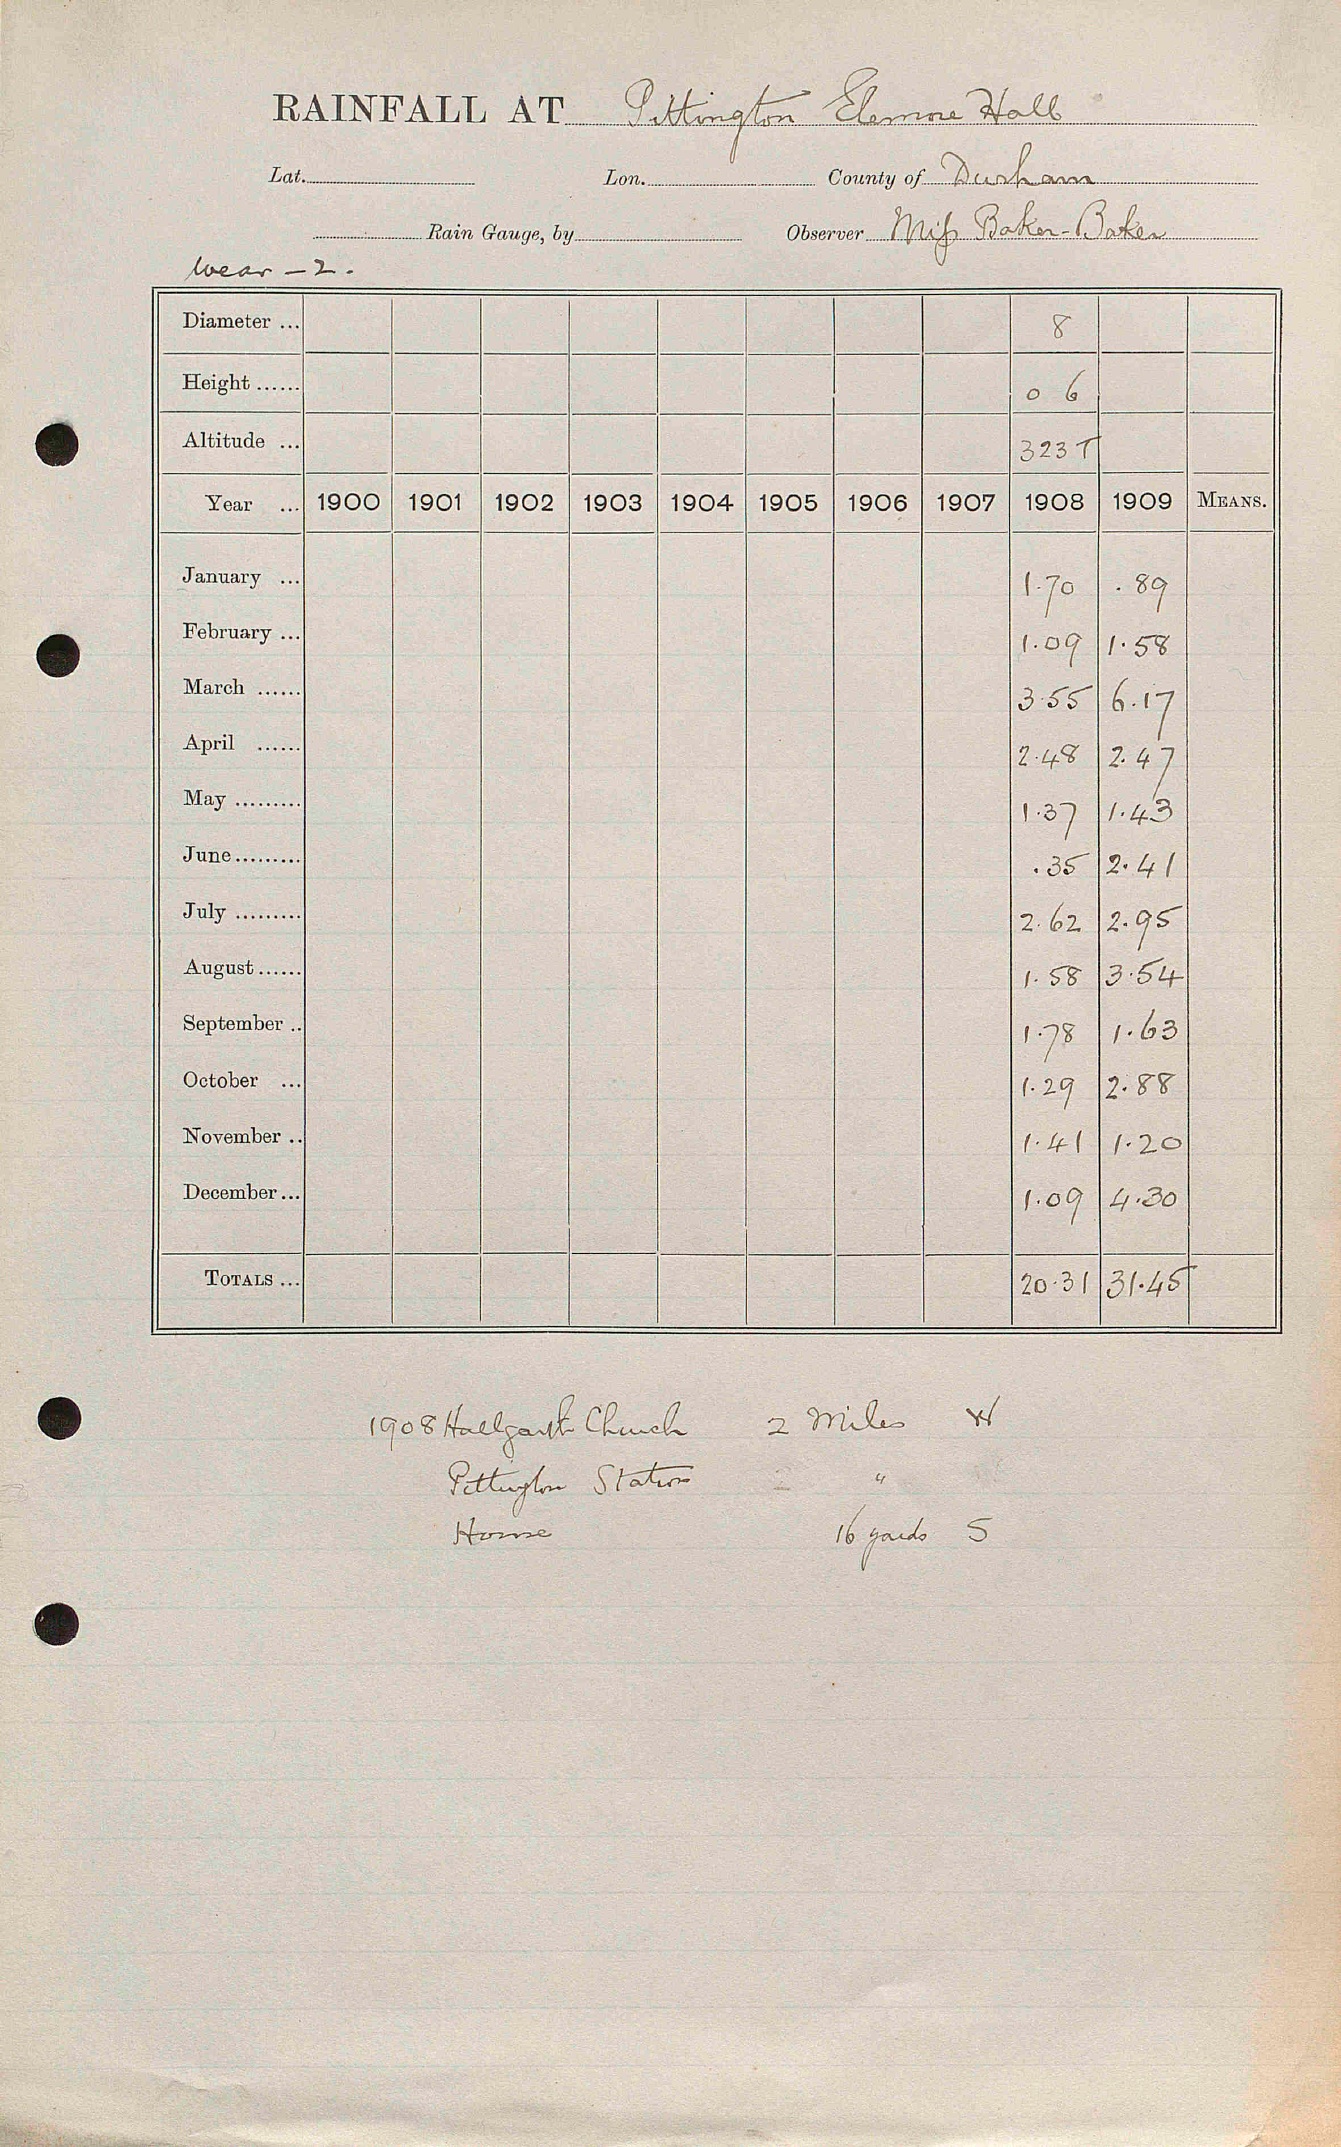 RAINFALL AT Pittington Elemore Hall
Lat. Lon. County of Durham
Rain Gauge, by Observer Miss Baker-Baker
Wear - 2.
Diameter ... 8
Height ...... 0 6
Altitude ... 323 T
Year ... 1900 1901 1902 1903 1904 1905 1906 1907 1908 1909 MEANS.
January ... 1.70 .89
February ... 1.09 1.58
March ...... 3.55 6.17
April ...... 2.48 2.47
May ......... 1.37 1.43
June ......... .35 2.41
July ......... 2.62 2.95
August ...... 1.58 3.54
September .. 1.78 1.63
October ... 1.29 2.88
November .. 1.41 1.20
December ... 1.09 4.30
TOTALS ... 20.31 31.45
1908 Hallgarth Church 2 Miles W
Pittington Station 2 "
House 16 yards S